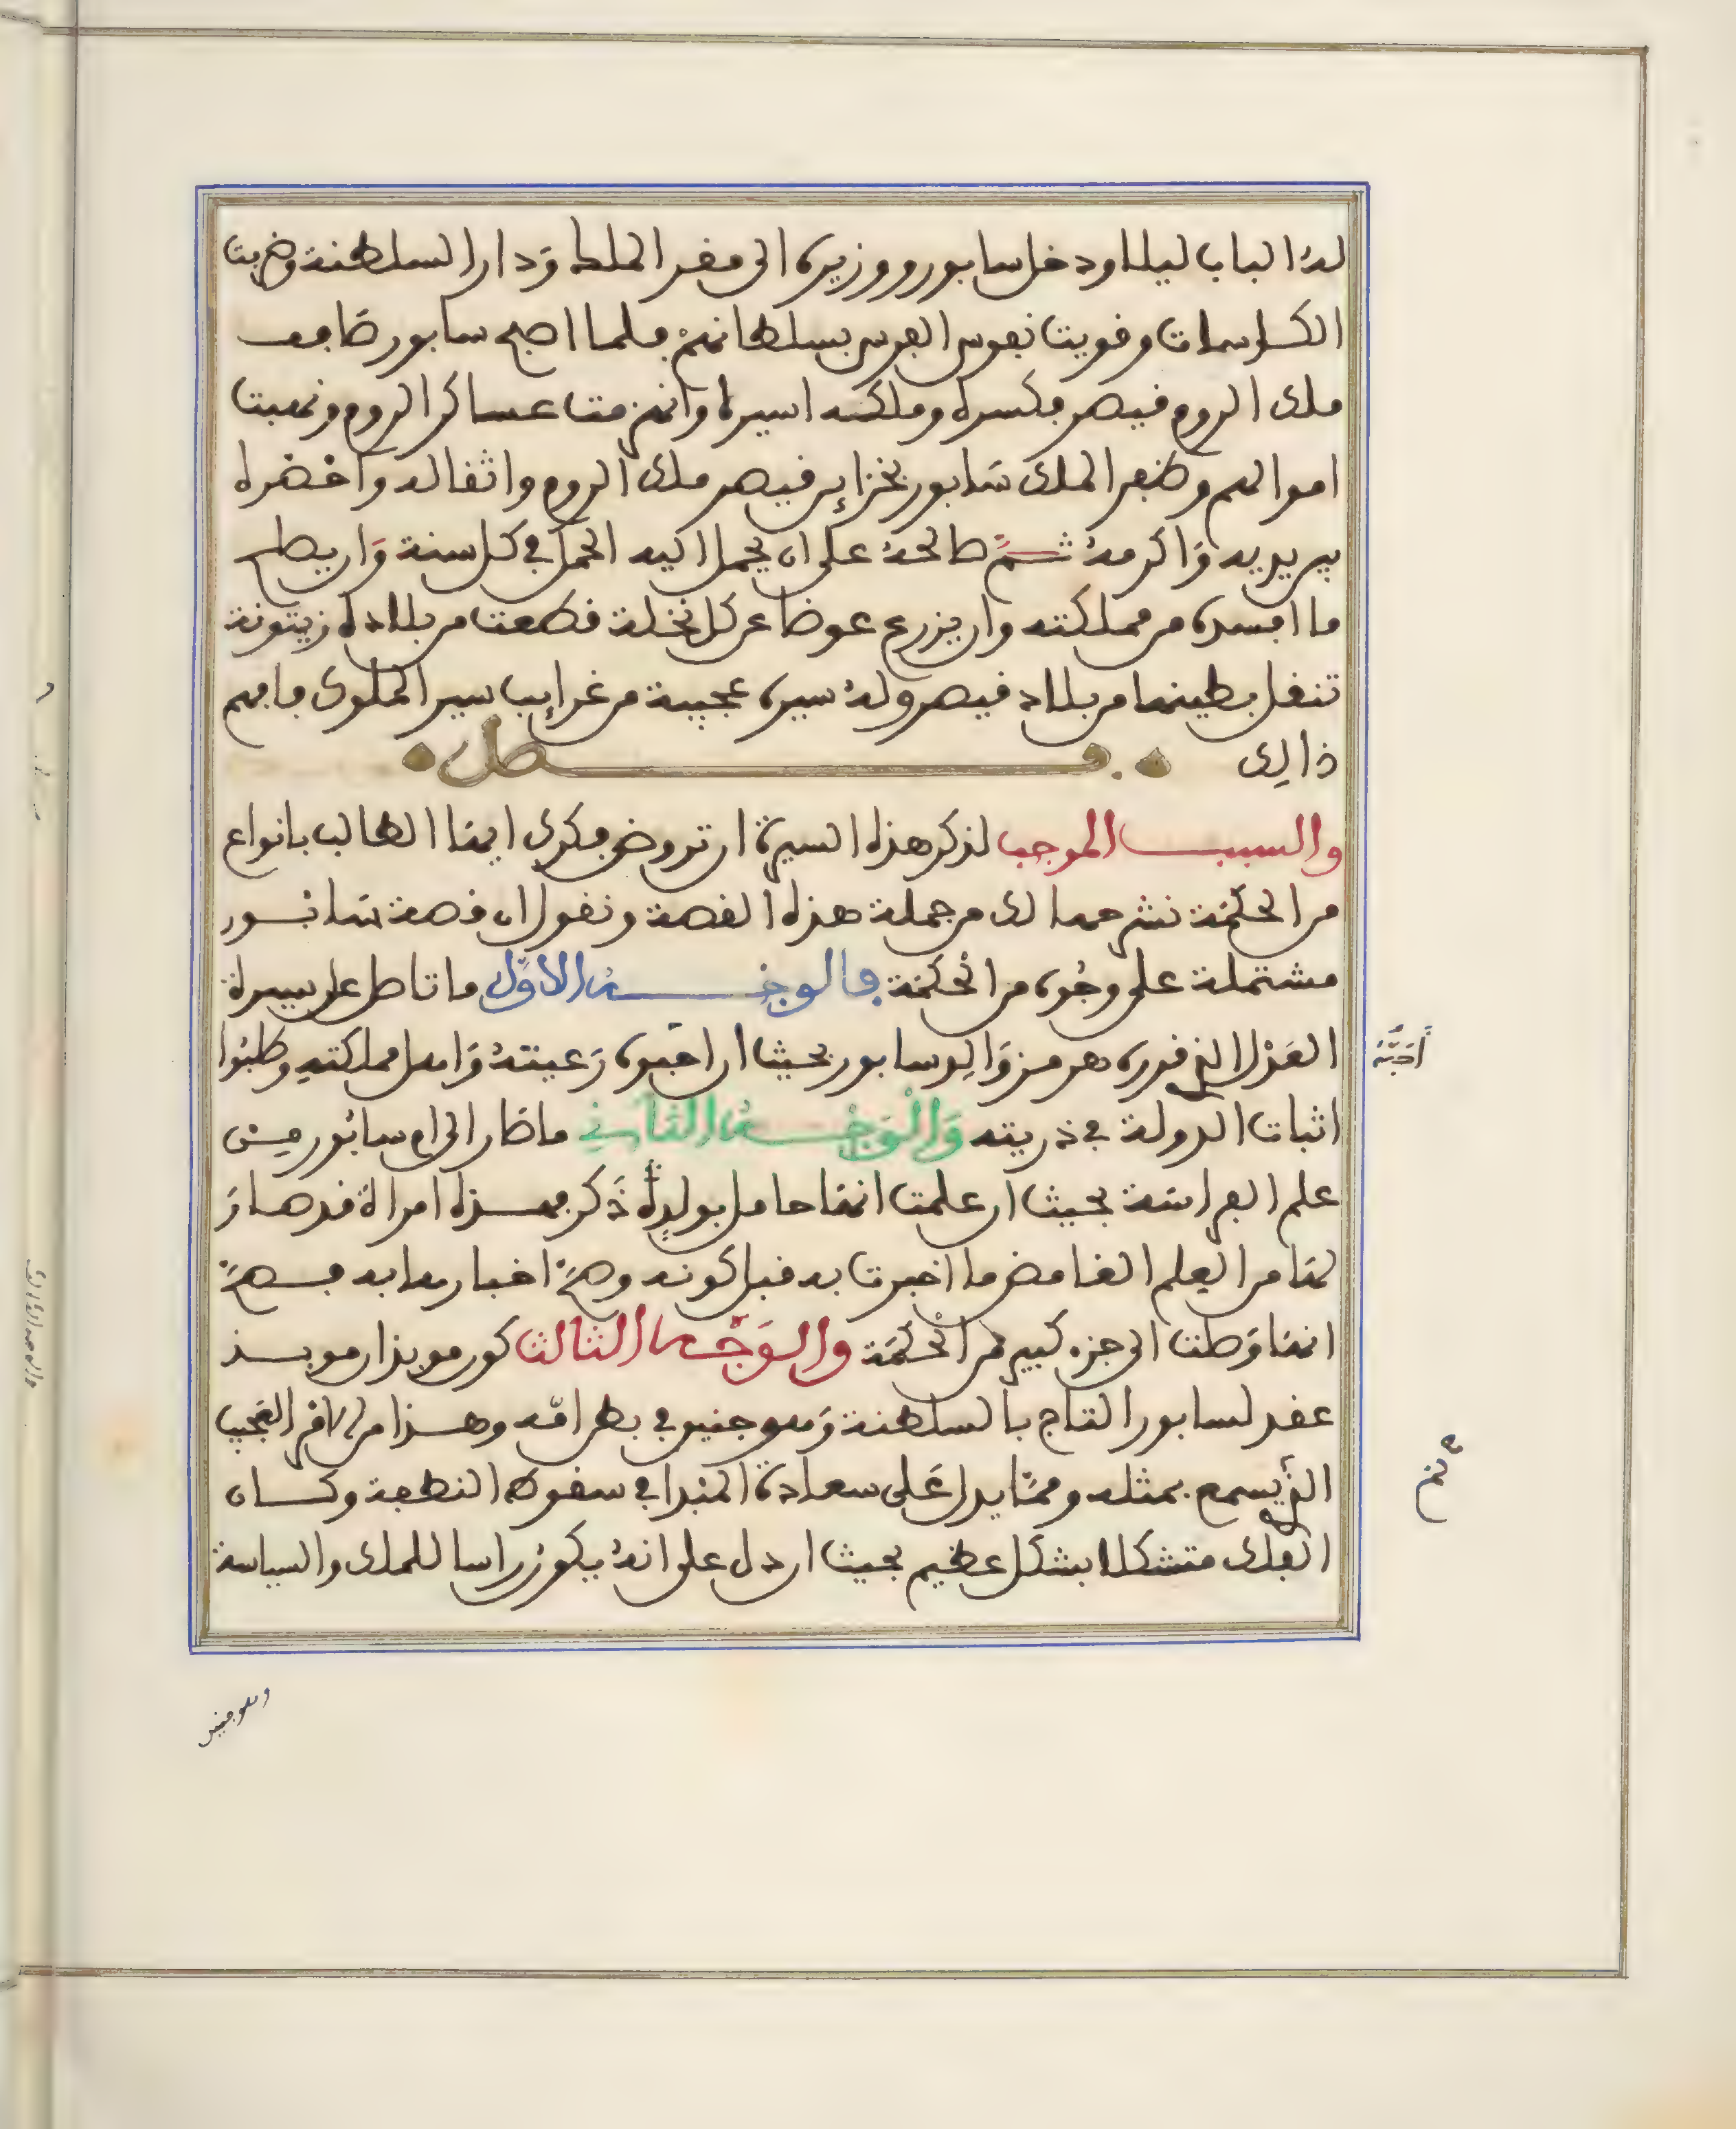 لهُ الباب ليلا ودخل سابور ووزيره الى مقر الملك وَدار السلطنة وضربت
الكاسات وقويت نفوس الفرس بسلطانهم فلما اصبح سابور صَافف
ملك الروم قيصر فكسره وملكه اسيرا وانهزمت عساكر الروم ونهبت
اموالهم وظفر الملك سَابور بخزاين قيصر ملك الروم واثقاله واحضره
بين يديه وَاكرمهُ ثمَّ صالحهُ على ان يحمل اليه الحمل في كل سنة وَان يصلح
ما افسده من مملكته وان يزرع عوضا عن كل نخلة قطعت من بلاده زيتونة
تنقل بطينها من بلاد قيصر ولهُ سيرة عجيبة من غرايب سير الملوك فافهم
ذالك فصل
والسبب الموجب لذكر هذه السيرة ان تروض فكرك ايها الطالب بانواع
من الحكمَة نشرحها لك من جملة هذه القصة ونقول ان قصة سَابور
مشتملة على وجُوه من الحكمَة فالوجه الاوَّل ما تاصل عن سيرة
العَدْل الذي قرره هرمز وَالِد سابور بحيث ان احَبوه رَعيتهُ وَاهل مملكتهِ وطلبُوا
اثبات الدولة في ذريته وَالْوَجْهُ الثاني ما صَار الى ام سابُور مِن
علم الفراسَة بحيث ان علمت انهَا حامل بولدٍ ذَكر فهذه امراة قد صَارَ
لهَا من العِلم الغامض ما اخبرت به قبل كونه وصَحَّ اخبارها به فصَحَّ
انهَا وَصلت الى جزء كبير من الحكمَة والوَجْه الثالث كون موبذان موبذ
عقد لسابور التاج بالسلطنة وَهو جنين في بطن امّه وهذا من الامر العَجيب
الذي يسمع بمثله وممَّا يدل عَلى سعادة المبدا في سقوط النطفة وكان
الفلك متشكلا بشكل عظيم بحيث ان دل على انهُ يكونُ راسا للملك والسياسة
أحَبَّهُ
لم
وهو جنين